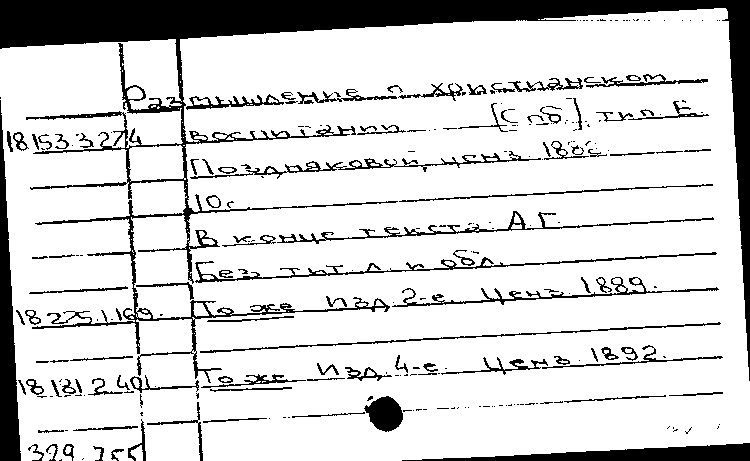 Размышление о христианском
18.153.3.274 воспитании [Спб.], тип. Е.
Поздняковой, ценз. 1882.
10 с.
В конце текста: А.Г.
Без тит. л. и обл.
18.275.1.169. То же Изд. 2-е. Ценз. 1889.
18.131.2.401 То же Изд. 4-е. Ценз. 1892.